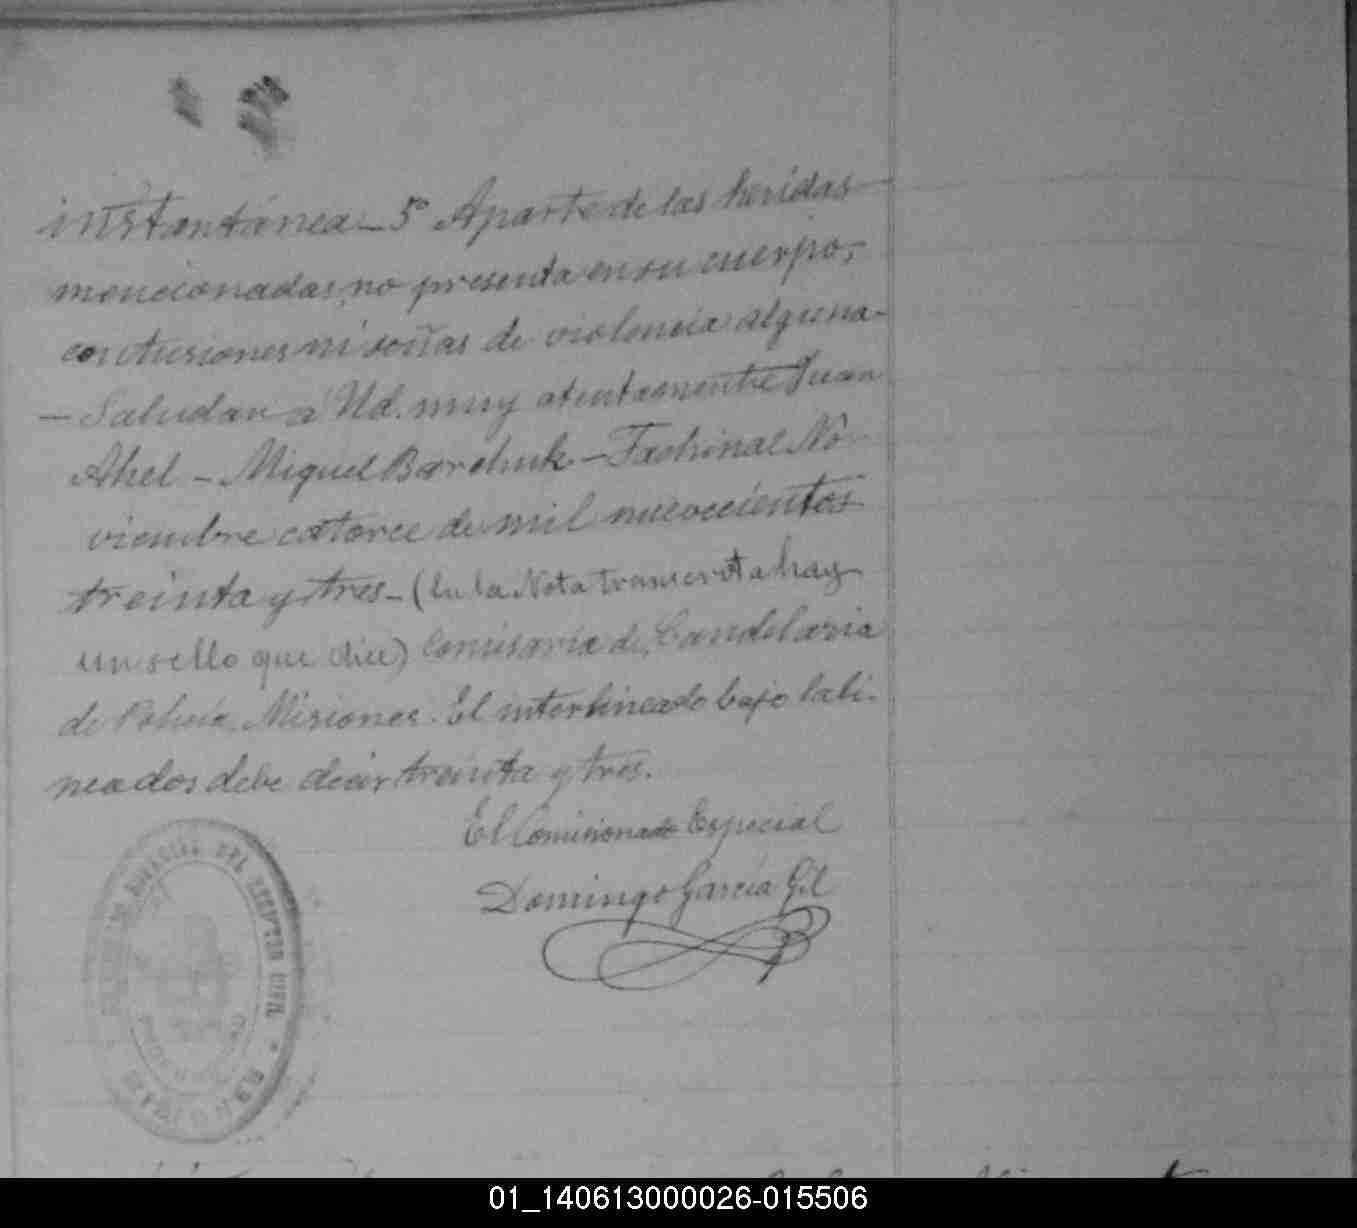 instantánea_ 5º Aparte de las heridas
mencionadas, no presenta en su cuerpo,
contusiones ni señas de violencia alguna-
- Saludan a Ud. muy atentamente Juan
Ahel - Miguel Barchuk - Fachinal No-
viembre catorce de mil novecientos
treinta y tres - (En la Nota transcrita hay
un sello que dice) Comisaría de Candelaria
de Policía, Misiones. El interlineado bajo lali-
neados debe decir treinta y tres.
El Comisionado Especial
Domingo García Gil
DEL REGISTRO CIVIL
MISIONES
01_140613000026-015506